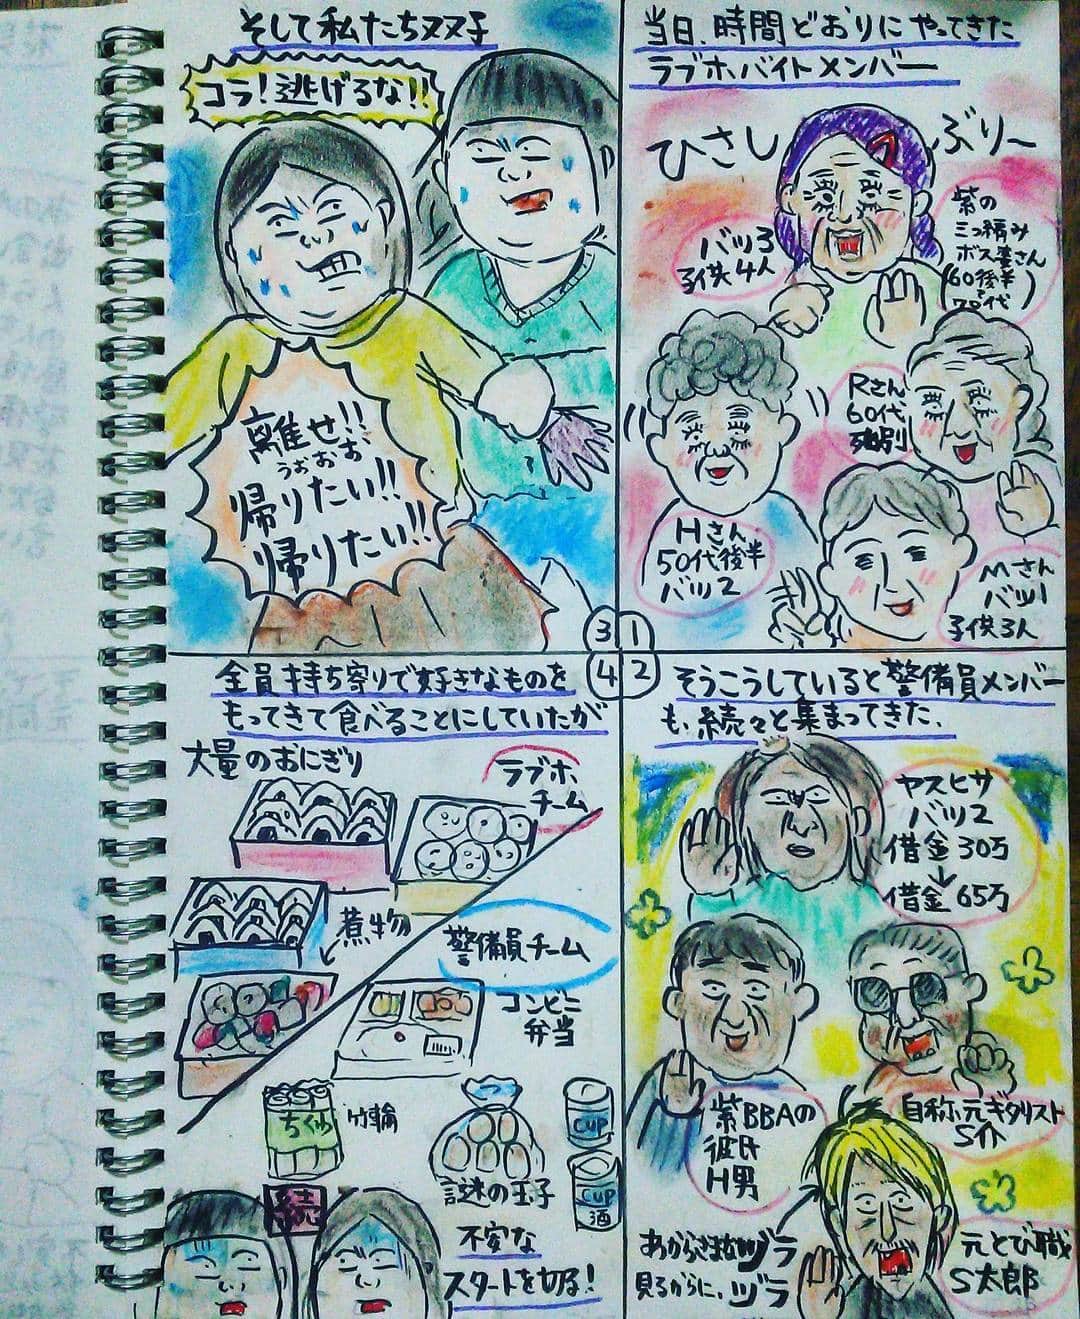 当日、時間どおりにやってきた
ラブホバイトメンバー
ひさしぶりー
バツ3
子供4人
紫の
三つ編み
ボス婆さん
(60後半
70代)
Rさん
60代
死別
Hさん
50代後半
バツ2
Mさん
バツ1
子供3人
1
そうこうしていると警備員メンバー
も、続々と集まってきた、
ヤスヒサ
バツ2
借金30万
↓
借金65万
紫BBAの
彼氏
H男
自称、元ギタリスト
S介
あからさまなヅラ
見るからに、ヅラ
元とび職
S太郎
2
そして私たちヌヌ子
コラ!逃げるな!!
離せ!!
うぉぉぉ
帰りたい!!
帰りたい!!
3
全員持ち寄りで好きなものを
もってきて食べることにしていたが
大量のおにぎり
ラブホ
チーム
煮物
警備員チーム
コンビニ
弁当
ちくわ
竹輪
謎の玉子
CUP
CUP
酒
続
不安な
スタートを切る!
4